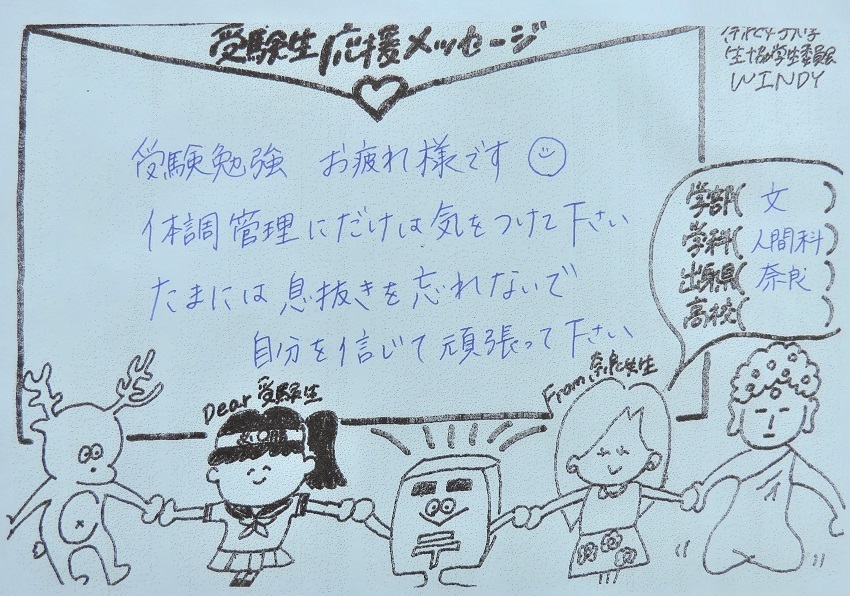 受験生応援メッセージ
生協学生委員会
WINDY
受験勉強 お疲れ様です
体調管理にだけは気をつけて下さい
たまには息抜きを忘れないで
自分を信じて頑張って下さい
学部(文)
学科(人間科)
出身県(奈良)
高校( )
Dear 受験生
From 奈良女生
〒